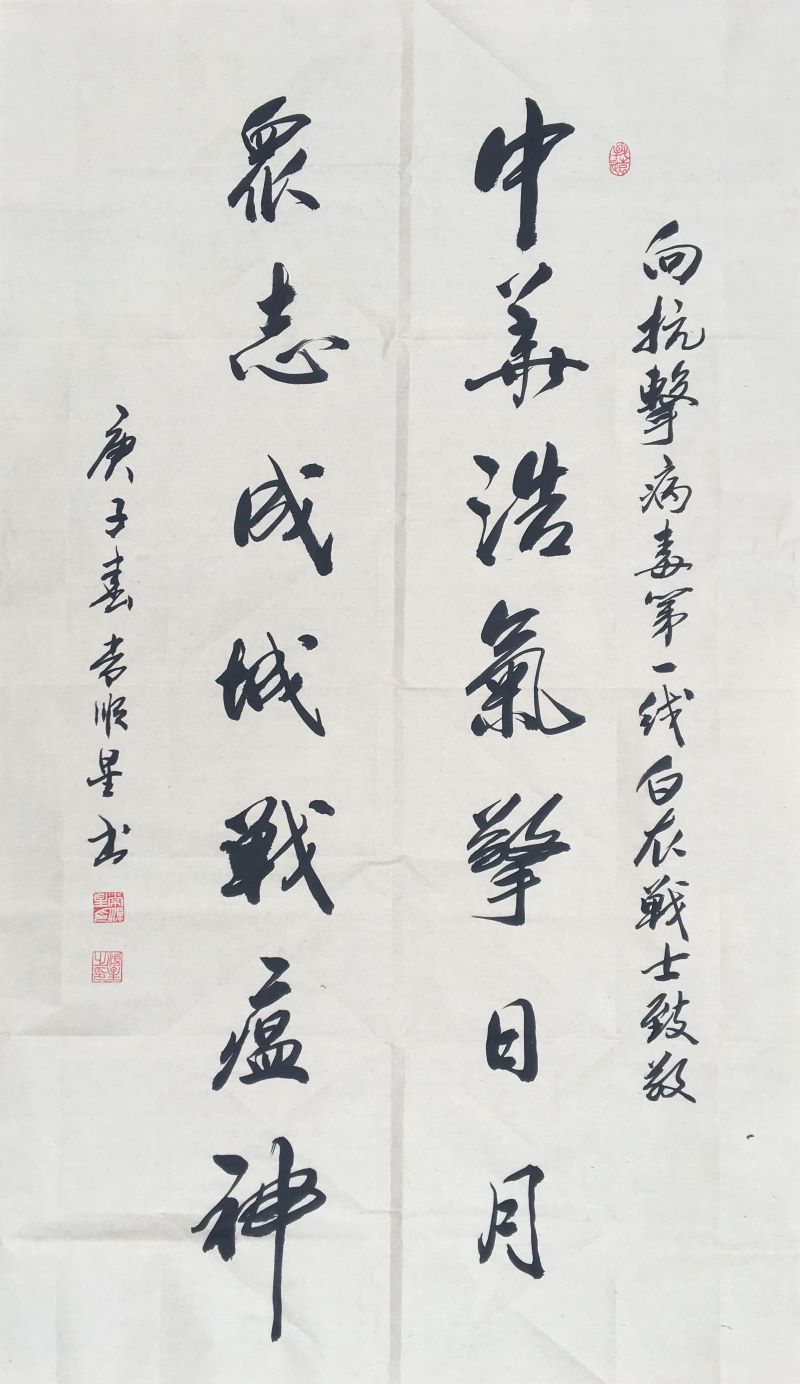 向抗擊病毒第一线白衣戰士致敬
中華浩氣擎日月
眾志成城戰瘟神
庚子春常順星书